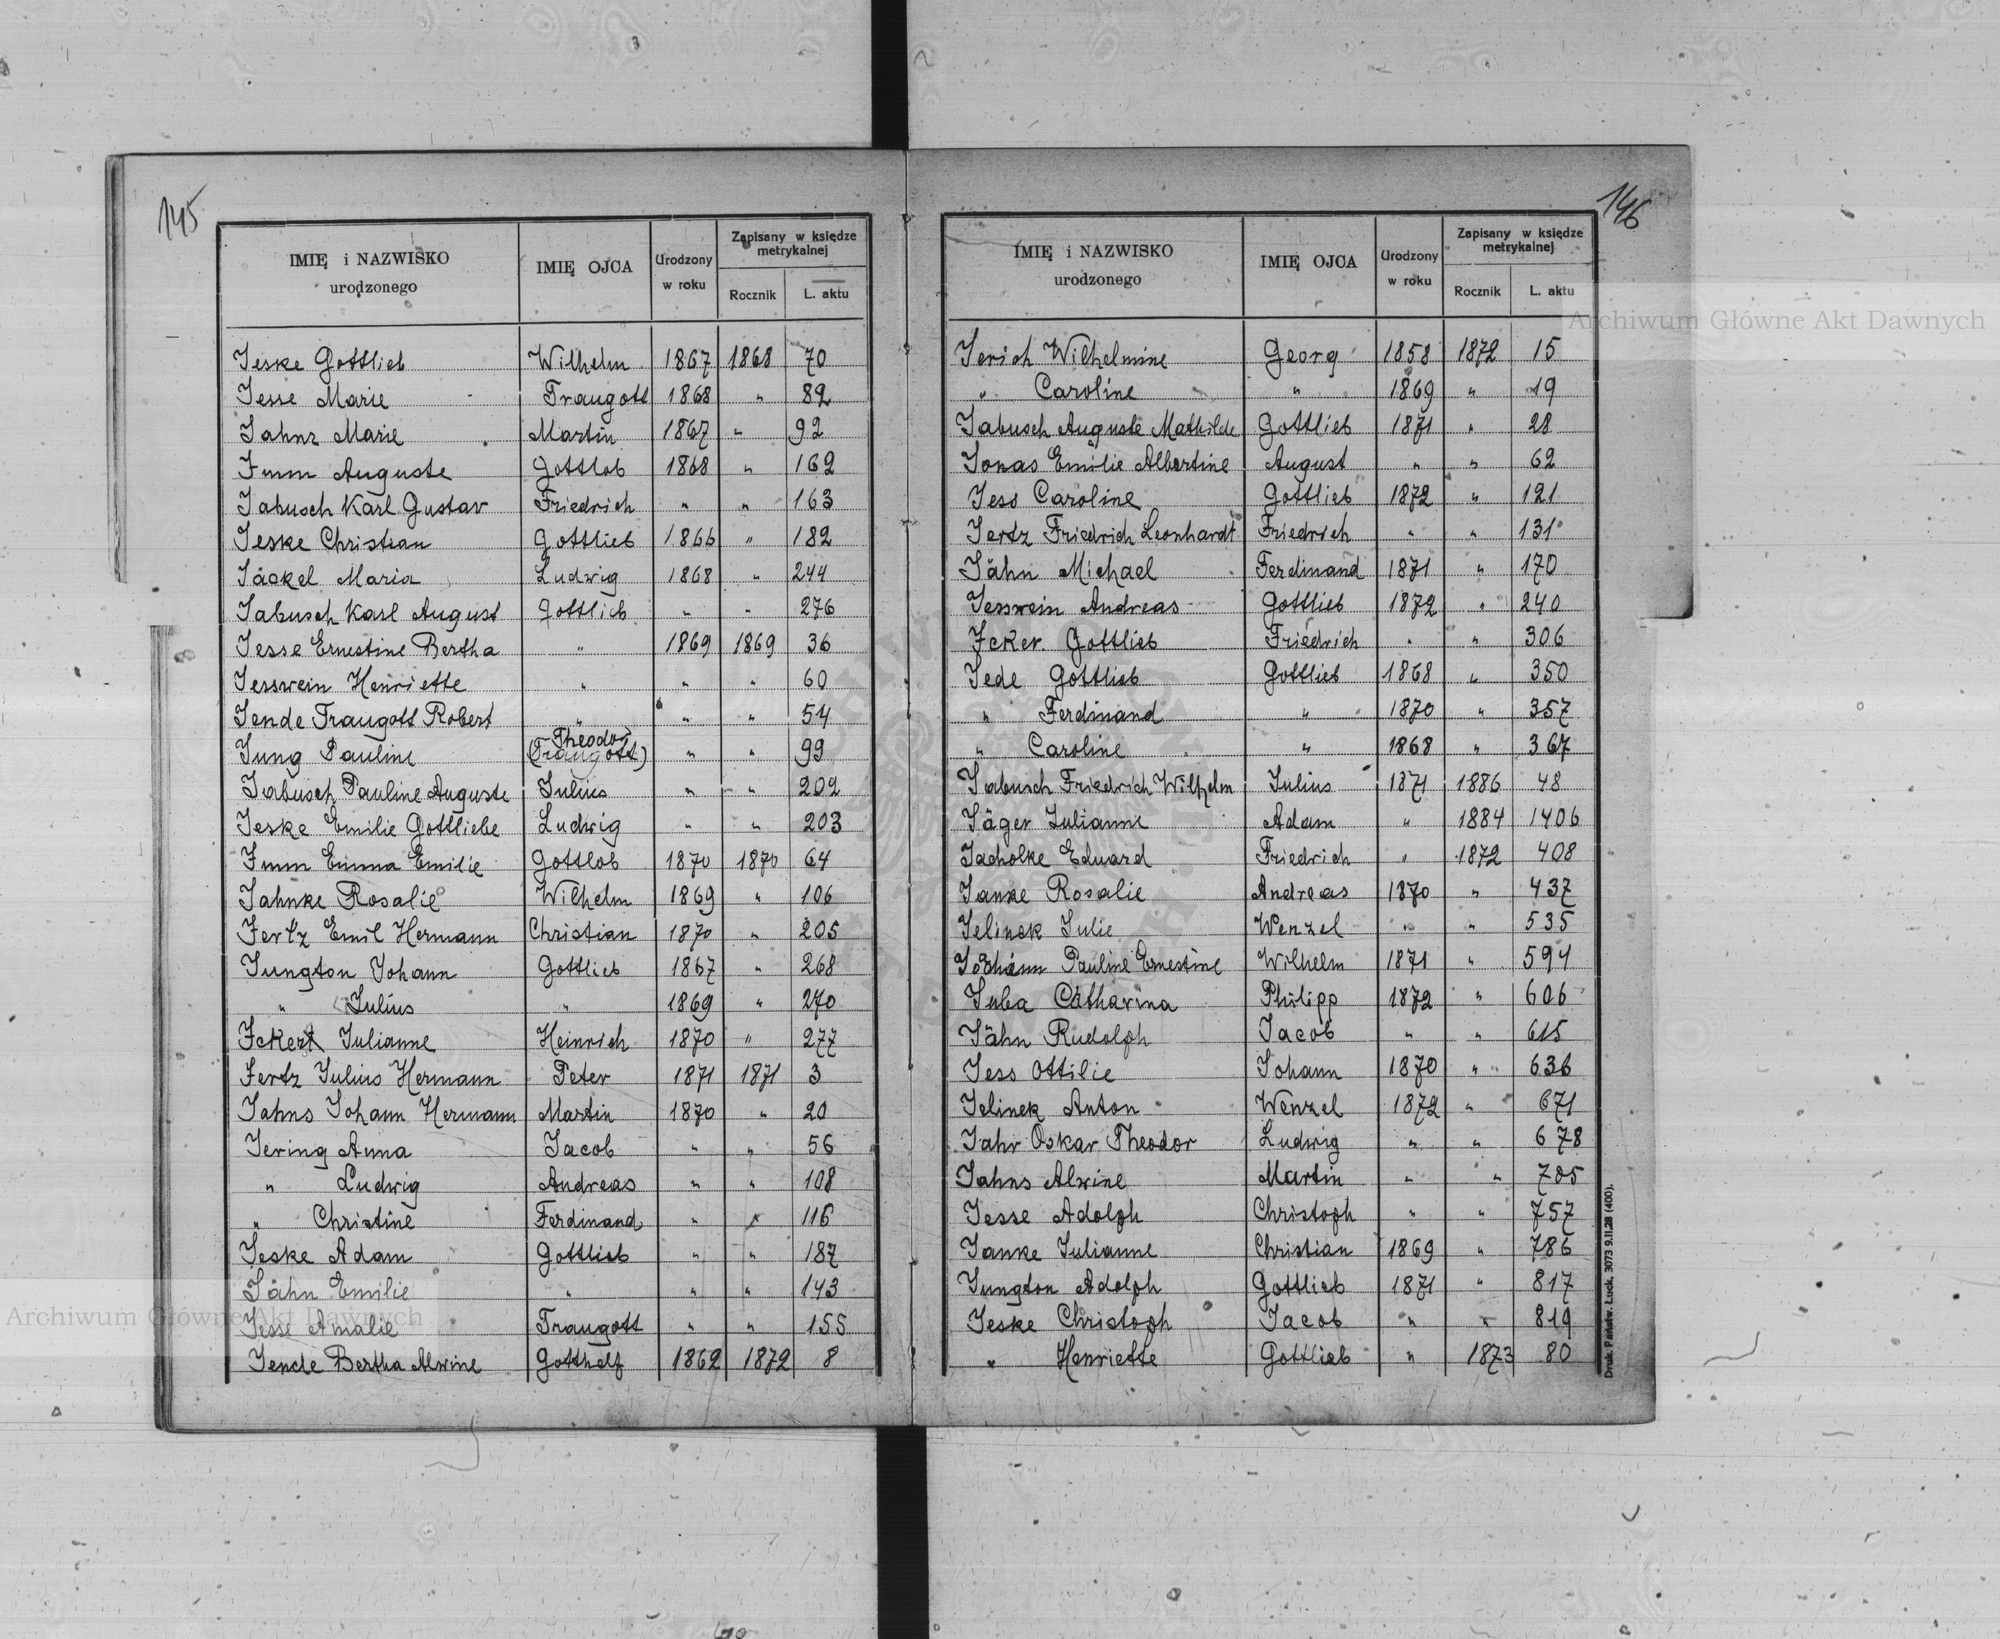 145
IMIĘ i NAZWISKO urodzonego | IMIĘ OJCA | Urodzony w roku | Zapisany w księdze metrykalnej | Rocznik | L. aktu
Jeske Gottlieb | Wilhelm | 1867 | 1868 | 70
Jesse Marie | Traugott | 1868 | " | 82
Jahnz Marie | Martin | 1867 | " | 92
Imm Auguste | Gottlob | 1868 | " | 162
Jabusch Karl Gustav | Friedrich | " | " | 163
Jeske Christian | Gottlieb | 1866 | " | 182
Jäckel Maria | Ludwig | 1868 | " | 244
Jabusch Karl August | Gottlieb | " | " | 276
Jesse Ernestine Bertha | " | 1869 | 1869 | 36
Jesswein Henriette | " | " | " | 60
Jende Traugott Robert | " | " | " | 54
Jung Pauline | Theodor (Traugott) | " | " | 99
Jabusch Pauline Auguste | Julius | " | " | 202
Jeske Emilie Gottliebe | Ludwig | " | " | 203
Imm Emma Emilie | Gottlob | 1870 | 1870 | 64
Jahnke Rosalie | Wilhelm | 1869 | " | 106
Jertz Emil Hermann | Christian | 1870 | " | 205
Jungton Johann | Gottlieb | 1867 | " | 268
" Julius | " | 1869 | " | 270
Ickert Julianne | Heinrich | 1870 | " | 277
Jertz Julius Hermann | Peter | 1871 | 1871 | 3
Jahns Johann Hermann | Martin | 1870 | " | 20
Jering Anna | Jacob | " | " | 56
" Ludwig | Andreas | " | " | 108
" Christine | Ferdinand | " | " | 116
Jeske Adam | Gottlieb | " | " | 187
Jähn Emilie | " | " | " | 143
Jesse Amalie | Traugott | " | " | 155
Jende Bertha Alwine | Gotthelf | 1862 | 1872 | 8
146
IMIĘ i NAZWISKO urodzonego | IMIĘ OJCA | Urodzony w roku | Zapisany w księdze metrykalnej | Rocznik | L. aktu
Jerich Wilhelmine | Georg | 1858 | 1872 | 15
" Caroline | " | 1869 | " | 19
Jabusch Auguste Mathilde | Gottlieb | 1871 | " | 28
Jonas Emilie Albertine | August | " | " | 62
Jess Caroline | Gottlieb | 1872 | " | 121
Jertz Friedrich Leonhardt | Friedrich | " | " | 131
Jähn Michael | Ferdinand | 1871 | " | 170
Jesswein Andreas | Gottlieb | 1872 | " | 240
Icker Gottlieb | Friedrich | " | " | 306
Jede Gottlieb | Gottlieb | 1868 | " | 350
" Ferdinand | " | 1870 | " | 357
" Caroline | " | 1868 | " | 367
Jabusch Friedrich Wilhelm | Julius | 1871 | 1886 | 48
Jäger Julianne | Adam | " | 1884 | 1406
Jacholke Eduard | Friedrich | " | 1872 | 408
Janke Rosalie | Andreas | 1870 | " | 437
Jelinek Julie | Wenzel | " | " | 535
Pauline Ernestine | Wilhelm | 1871 | " | 594
Juba Catharina | Philipp | 1872 | " | 606
Jähn Rudolph | Jacob | " | " | 615
Jess Ottilie | Johann | 1870 | " | 636
Jelinek Anton | Wenzel | 1872 | " | 671
Jahr Oskar Theodor | Ludwig | " | " | 678
Jahns Alwine | Martin | " | " | 705
Jesse Adolph | Christoph | " | " | 757
Janke Julianne | Christian | 1869 | " | 786
Jungton Adolph | Gottlieb | 1871 | " | 817
Jeske Christoph | Jacob | " | " | 819
" Henriette | Gottlieb | " | 1873 | 80
Druk. Państw. Łuck. 3073 9.II.28 (400).
Archiwum Główne Akt Dawnych
Archiwum Główne Akt Dawnych